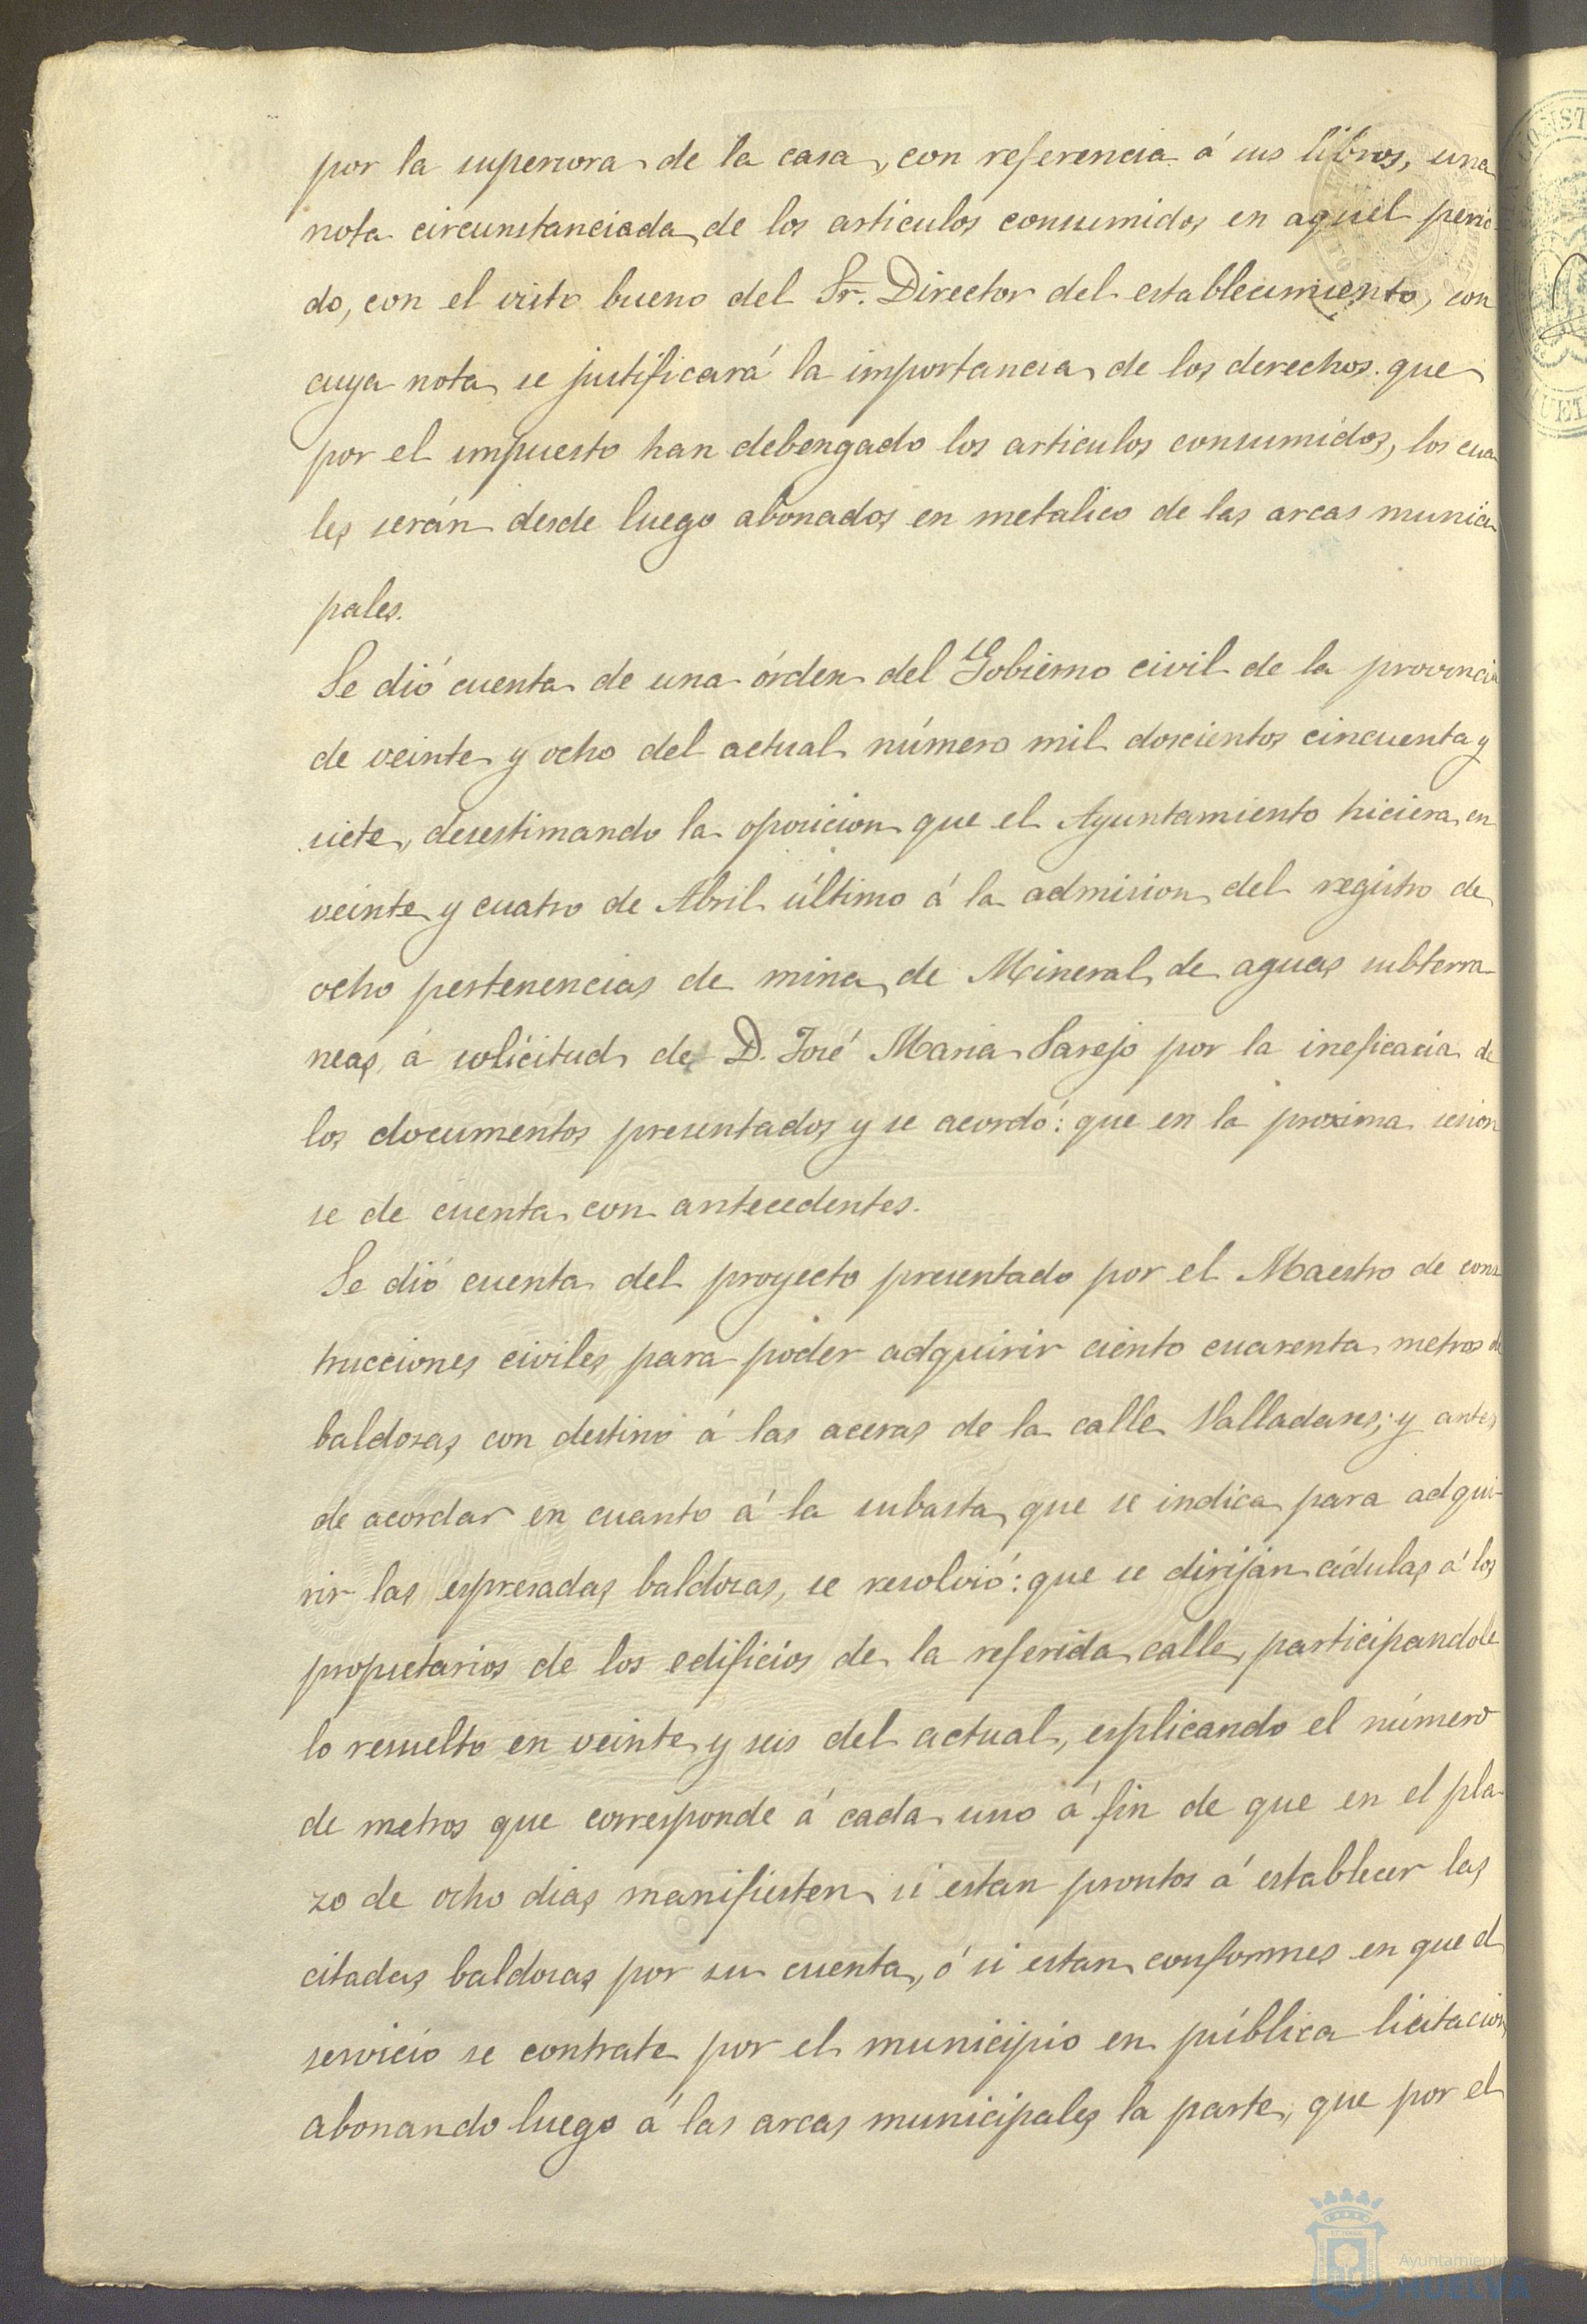 por la superiora de la casa, con referencia á sus libros, una
nota circunstanciada de los articulos consumidos en aquel perio
do, con el visto bueno del Sr. Director del establecimiento, con
cuya nota se justificará la importancia de los derechos que
por el impuesto han debengado los articulos consumidos, los cua
les serán desde luego abonados en metalico de las arcas munici
pales.
Se dió cuenta de una órden del Gobierno civil de la provincia
de veinte y ocho del actual número mil doscientos cincuenta y
siete, desestimando la oposicion que el Ayuntamiento hiciera en
veinte y cuatro de Abril último á la admision del registro de
ocho pertenencias de mina de Mineral de aguas subterra
neas, á solicitud de D. José Maria Sarejo por la ineficacia de
los documentos presentados y se acordó: que en la proxima sesion
se de cuenta con antecedentes.
Se dió cuenta del proyecto presentado por el Maestro de cons
trucciones civiles para poder adquirir ciento cuarenta metros de
baldosas con destino á las aceras de la calle Valladares; y antes
de acordar en cuanto á la subasta que se indica para adqui-
rir las espresadas baldosas, se resolvió: que se dirijan cédulas á los
propietarios de los edificios de la referida calle, participandole
lo resuelto en veinte y seis del actual, esplicando el número
de metros que corresponde á cada uno á fin de que en el pla-
zo de ocho dias manifiesten si estan prontos á establecer las
citadas baldosas por su cuenta, ó si estan conformes en que el
servicio se contrate por el municipio en pública licitacion
abonando luego á las arcas municipales la parte, que por el
Ayuntamiento
HUELVA